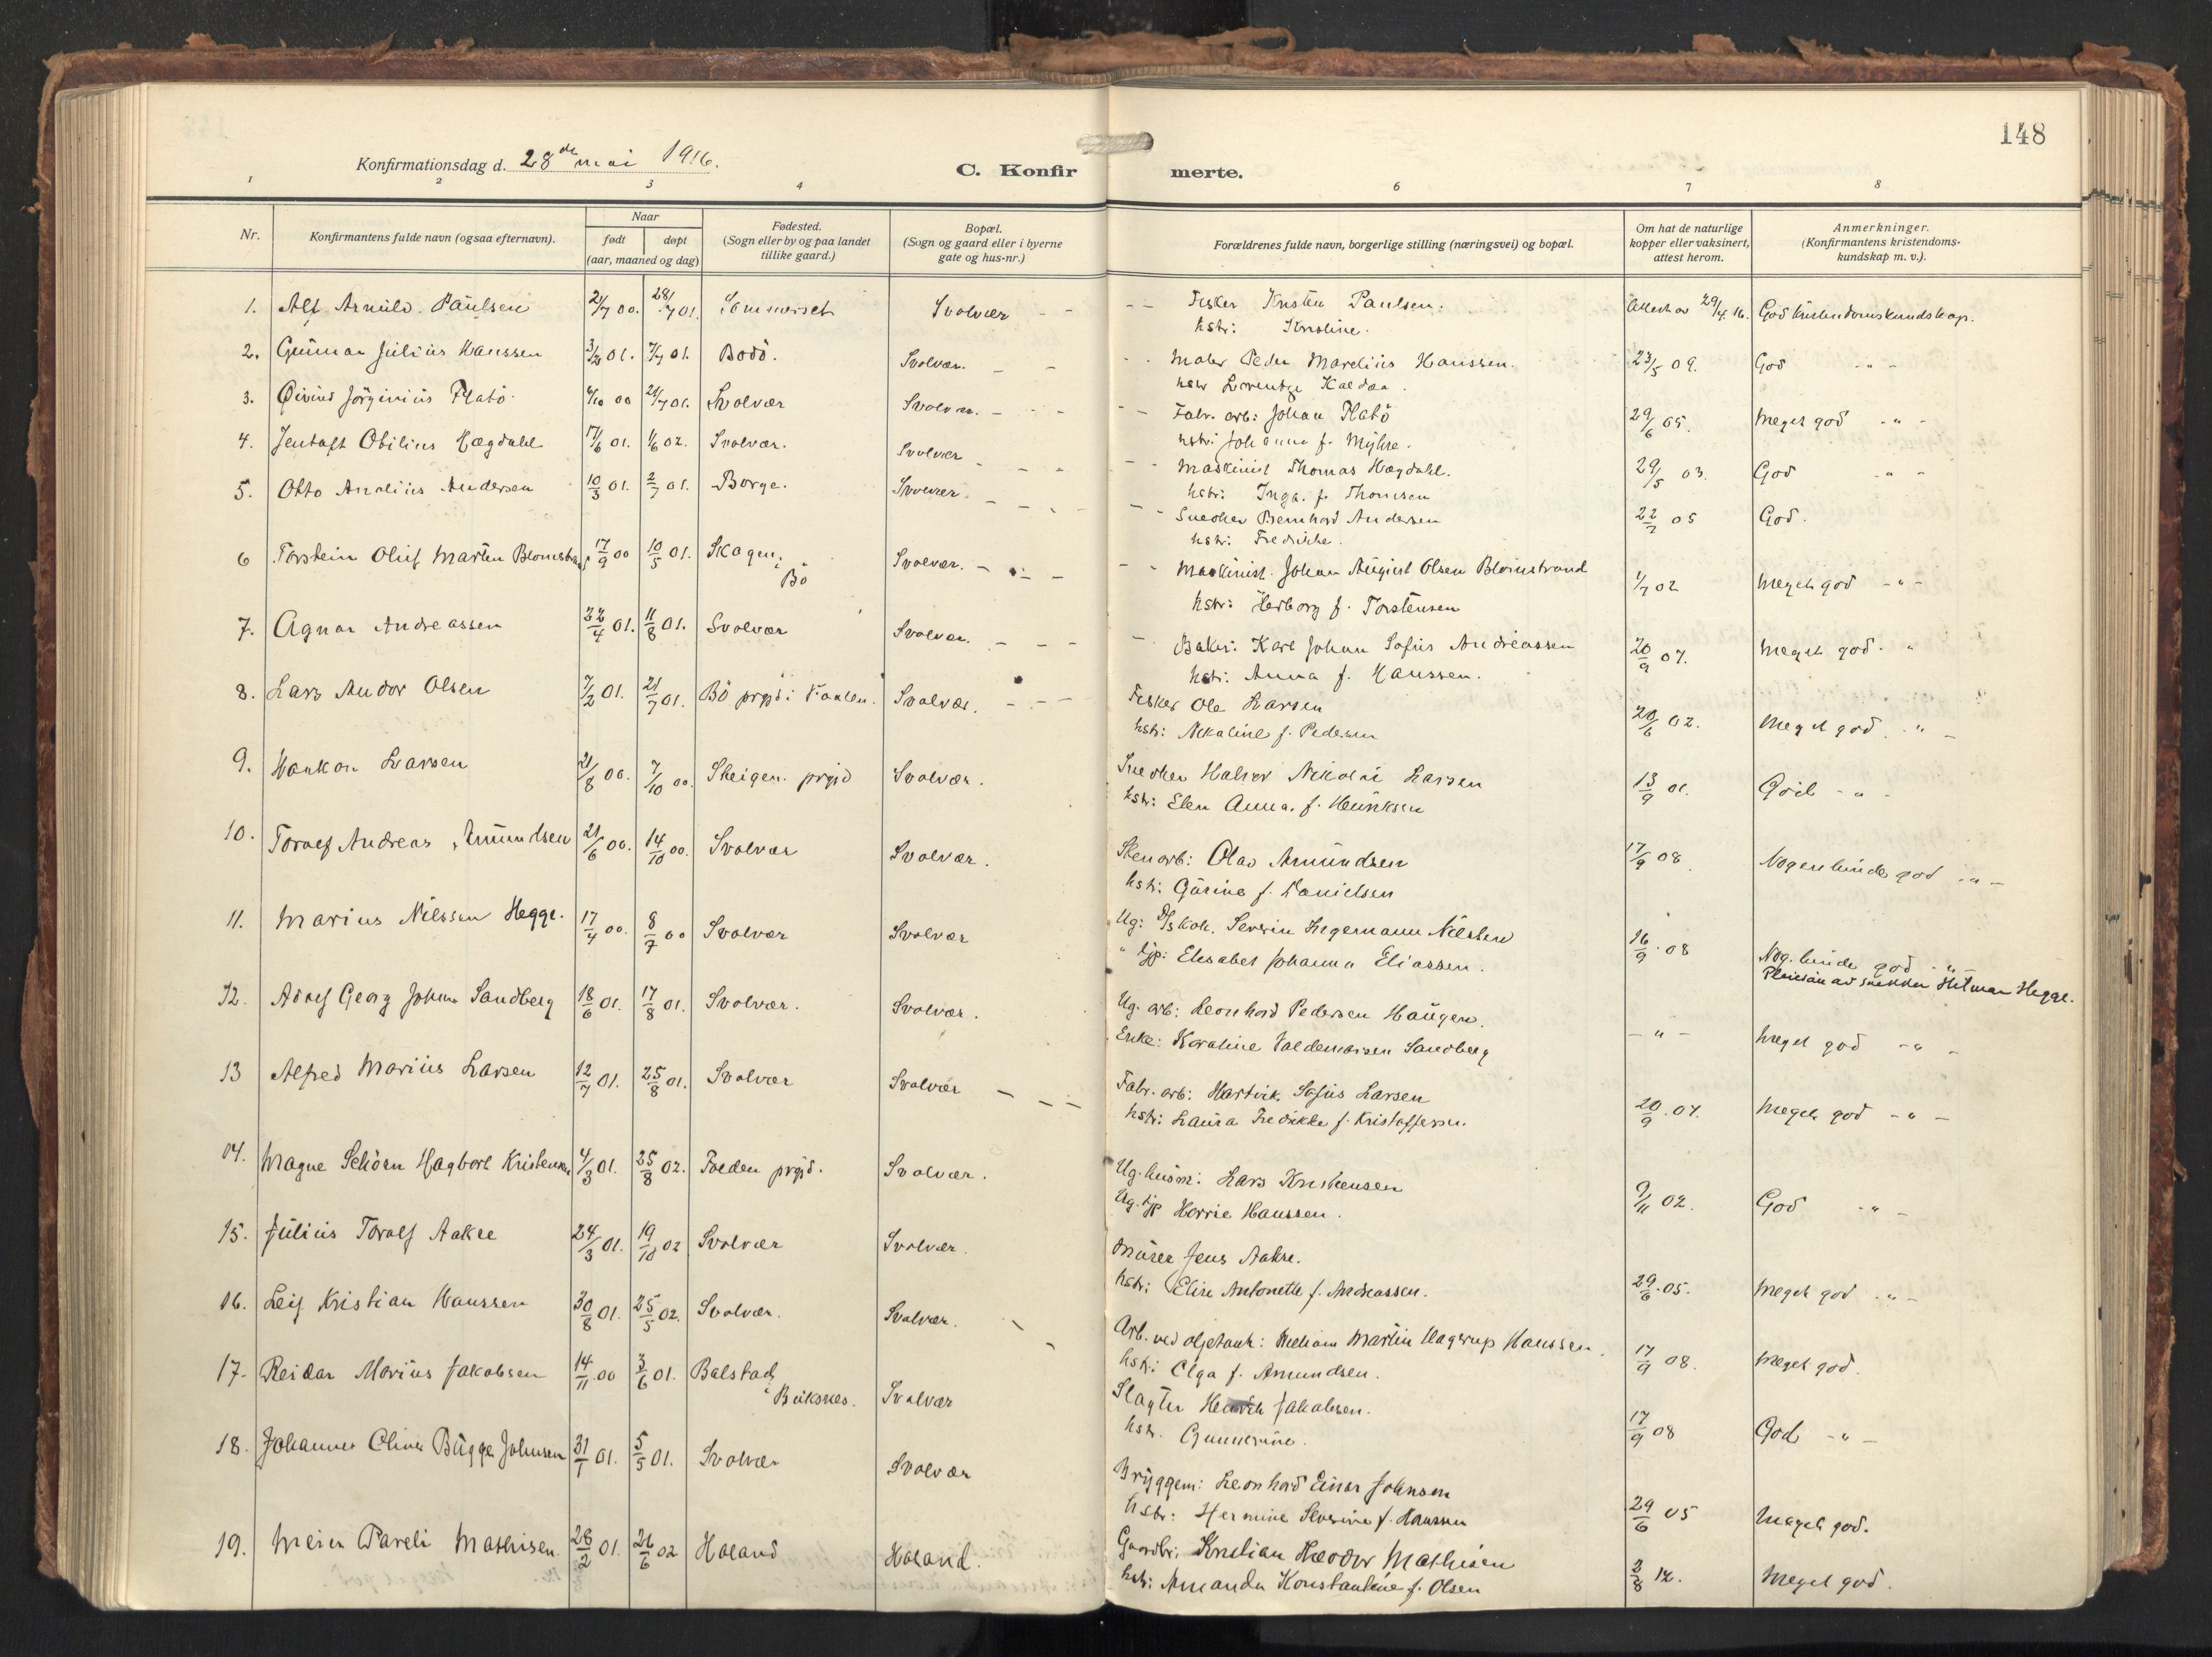 148
Konfirmationsdag d. 28de mai 1916.
C. Konfirmerte.
1 2 3 4 6 7 8
Nr.
Konfirmantens fulde navn (ogsaa efternavn).
Naar
født
døpt
(aar, maaned og dag)
Fødested.
(Sogn eller by og paa landet
tillike gaard.)
Bopæl.
(Sogn og gaard eller i byerne
gate og hus-nr.)
Forældrenes fulde navn, borgerlige stilling (næringsvei) og bopæl.
Om hat de naturlige
kopper eller vaksinert,
attest herom.
Anmerkninger.
(Konfirmantens kristendoms-
kundskap m. v.).
1. Alf Arnulv Paulsen 2/7 00. 28/7 01. Sommerset Svolvær - - - - Fisker Kristen Paulsen. Attest av 29/4 16. God kristendomskundskap.
hstr: Kristine.
2. Gunnar Julius Hanssen 01. 7/7 01. Bodö. Svolvær. - - - - Maler Peder Marelius Hanssen. 23/5 09. God - " -
hstr Lorentze Kaldaa.
3. Øivind Jörginius Flatö 9/10 00 21/7 01. Svolvær Svolvær. - - - - - Fabr. arb: Johan Flatö 29/6 05. Meget god - " -
hstr: Johanna f. Myhre.
4. Jentoft Obilius Hægdahl 17/6 01. 1/6 02. Svolvær. Svolvær - - - - - Maskinist Thomas Hægdahl. 29/5 03. God - " -
hstr: Inga f. Thomsen
5. Otto Analius Andersen 10/3 01. 2/7 01. Borge. Svolvær. - - - - - Snedker Bernhard Andersen 22/7 05 God.
hstr: Fredrikke.
6 Torstein Oluf Martin Blomstrand 17/9 00 10/5 01. Skagen i Svolvær. - - - - - Maskinist Johan August Olsen Blomstrand 1/7 02 Meget god - " -
Bö
hstr: Herborg f. Torstensen
7. Agnar Andreassen 22/4 01. 11/8 01. Svolvær Svolvær. - - - - Baker: Karl Johan Sofus Andreassen 20/9 07. Meget god. "
hstr: Anna f. Hanssen.
8. Lars Andor Olsen 7/2 01. 21/7 01. Bö prgjd i Svolvær. - - - Fisker Ole Larsen 20/6 02. Meget god. " -
hstr: Nikaline f. Pedersen
9. Haakon Larsen 21/8 00. 7/10 00. Steigen prgjd Svolvær. Snedker Halvor Nikolai Larsen 13/9 01. God - " -
hstr: Elen Anna f. Henriksen
10. Toralf Andreas Amundsen 21/6 00. 14/10 00. Svolvær Svolvær. Stenarb: Olav Amundsen 17/9 08. Nogenlunde god - " -
hstr: Gurine f. Danielsen
11. Marius Nilssen Hegge. 17/4 00. 8/7 00 Svolvær Svolvær Ug: Severin Hegermann Nilssen 16/9 08 Nog. lunde god - " -
" tjp: Elisabet Johanna Eliassen. Pleiesön av snekker Hilmar Hegge.
12. Adolf Georg Johan Sandberg 18/6 01. 17/8 01. Svolvær. Svolvær. Ug. arb: Leonhard Pedersen Haugen. - " - Meget god - " -
Enke: Karoline Valdemarsen Sandberg
13 Alfred Marius Larsen 12/7 01. 25/8 01. Svolvær Svolvær - - - Fabr. arb: Hartvik Sofus Larsen 20/9 07. Meget god - " -
hstr: Laura Fredrikke f. Kristoffersen.
14. Magne Hagbart Kristensen 4/3 01. 25/8 02. Folden prgjd. Svolvær. Ug. husm: Lars Kristensen 9/11 02. God - " -
Ug. tjp Hanssen.
15. Julius Toralf Aakre 24/3 01. 19/10 02 Svolvær Svolvær. Murer Jens Aakre. 29/6 05. Meget god - " -
hstr: Elise Antonette f. Andreassen.
16. Leif Kristian Hanssen 30/8 01. 25/5 02. Svolvær. Svolvær. Arb. ved oljetank: William Martin Hagerup Hanssen. 17/9 08. Meget god.
hstr: Olga f. Amundsen.
17. Reidar Marius Jakobsen 14/11 00 3/6 01. Balstad i Buksnes. Svolvær Slagter Henrik Jakobsen. 17/9 08 God - " -
hstr. Gunnerine.
18. Johannes Bugge Johnsen 31/1 01. 5/5 01. Svolvær Svolvær Bryggem: Leonhard Einar Johnsen 29/6 05 Meget god.
hstr: Hermine Severine f. Hanssen
19. Meier Pareli Mathisen 28/2 01. 26/6 02 Holand Holand. Gaardbr. Kristian Mathisen 2/8 12. Meget god.
hstr: Amanda Konstantine f. Olsen